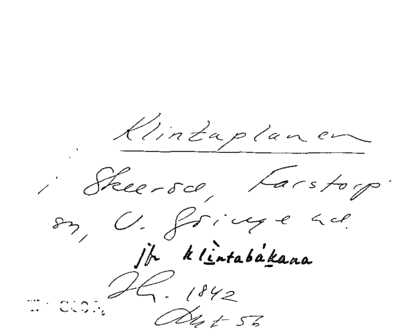 Klintaplanen
i Skeeröd, Farstorp
sn, V. Göinge hd.
jfr klintabákana
1842